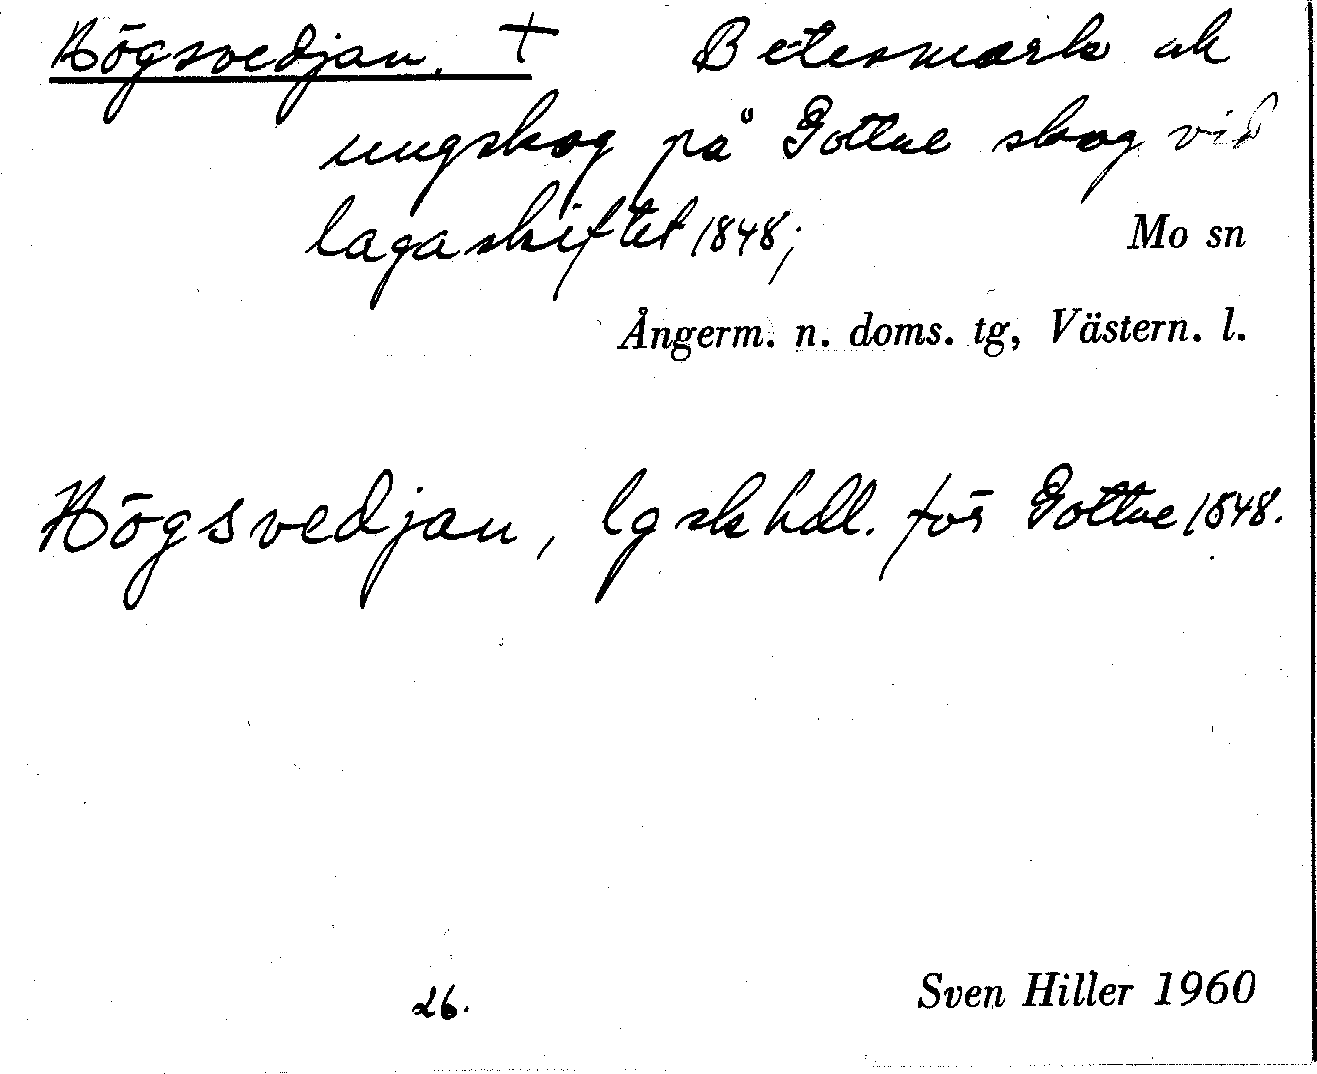 Högsvedjan. † Betesmark ok
ungskog på Gottne skog vid
lagaskiftet 1848;
Mo sn
Ångerm. n. doms. tg, Västern. l.
Högsvedjan, lg sk hdl. för Gottne 1848.
26.
Sven Hiller 1960